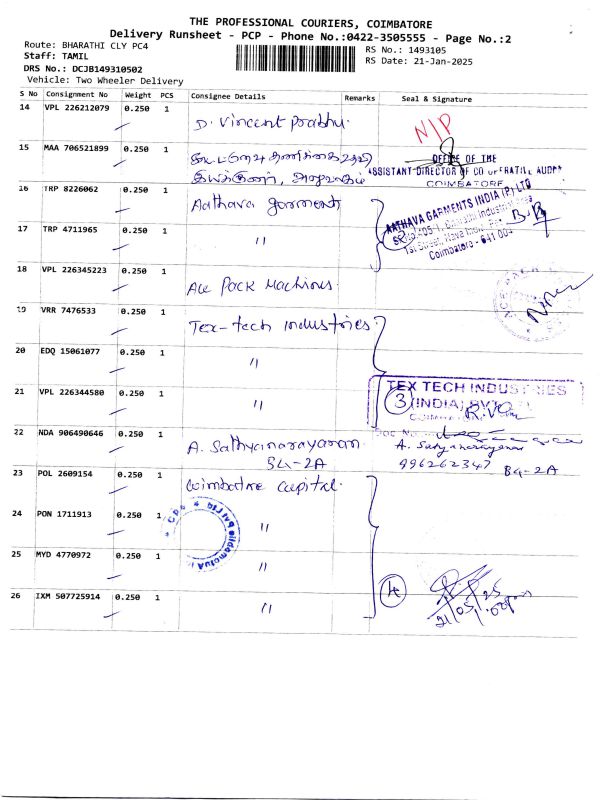 THE PROFESSIONAL COURIERS, COIMBATORE
Delivery Runsheet - PCP - Phone No.:0422-3505555 - Page No.:2
Route: BHARATHI CLY PC4
RS No.: 1493105
Staff: TAMIL
RS Date: 21-Jan-2025
DRS No.: DCJB149310502
Vehicle: Two Wheeler Delivery
S No Consignment No Weight PCS Consignee Details Remarks Seal & Signature
14 VPL 226212079 0.250 1 D. Vincent Prabhu. N/P
15 MAA 706521899 0.250 1
OFFICE OF THE
ASSISTANT DIRECTOR OF CO OPERATIVE AUDIT
COIMBATORE
16 TRP 8226062 0.250 1 Aathava garments
AATHAVA GARMENTS INDIA (P) LTD
17 TRP 4711965 0.250 1 "
Coimbatore - 641 004
18 VPL 226345223 0.250 1 Ace Pack Machines.
19 VRR 7476533 0.250 1 Tex-tech industries
20 EDQ 15061077 0.250 1 "
21 VPL 226344580 0.250 1 "
TEX TECH INDUSTRIES
(INDIA) PVT
3
22 NDA 906490646 0.250 1 A. Sathyanarayanan
B4-2A
A. Satyanarayanan
996262347 B4-2A
23 POL 2609154 0.250 1 Coimbatore capital.
24 PON 1711913 0.250 1 "
25 MYD 4770972 0.250 1 "
26 IXM 507725914 0.250 1 "
4